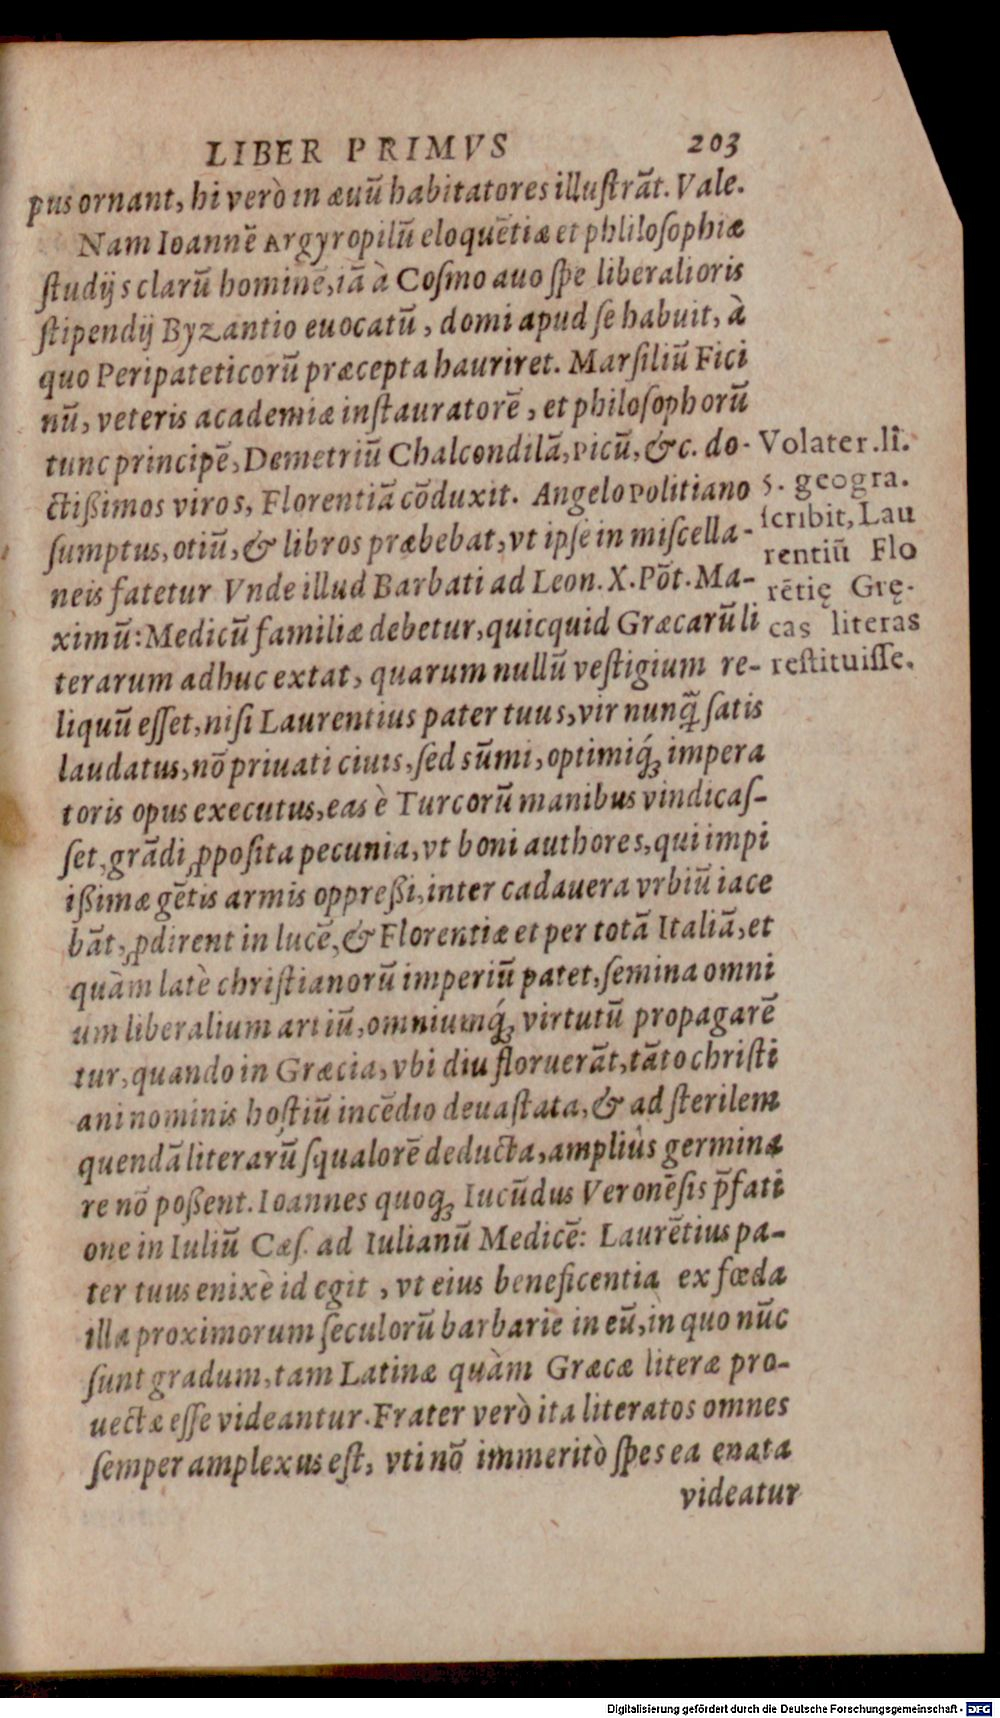 LIBER PRIMVS 203
pus ornant, hi verò in æuũ habitatores illuſtrãt. Vale.
Nam Ioannẽ Argyropilũ eloquẽtiæ et phliloſophiæ
ſtudijs clarũ hominẽ, iã à Coſmo auo ſpe liberalioris
ſtipendij Byzantio euocatũ, domi apud ſe habuit, à
quo Peripateticorũ præcepta hauriret. Marſiliũ Fici
nũ, veteris academiæ inſtauratorẽ, et philoſophorũ
tunc principẽ, Demetriũ Chalcondilã, Picũ, &c. do-
ctißimos viros, Florentiã cõduxit. Angelo Politiano
ſumptus, otiũ, & libros præbebat, vt ipſe in miſcella-
neis fatetur Vnde illud Barbati ad Leon. X. Põt. Ma-
ximũ: Medicũ familiæ debetur, quicquid Græcarũ li
terarum adhuc extat, quarum nullũ veſtigium re-
liquũ eſſet, niſi Laurentius pater tuus, vir nunq̃ ſatis
laudatus, nõ priuati ciuis, ſed sũmi, optimiq́; impera
toris opus executus, eas è Turcorũ manibus vindicaſ-
ſet, grãdi ꝓpoſita pecunia, vt boni authores, qui impi
ißimæ gẽtis armis oppreßi, inter cadauera vrbiũ iace
bãt, ꝓdirent in lucẽ, & Florentiæ et per totã Italiã, et
quàm latè chriſtianorũ imperiũ patet, ſemina omni
um liberalium artiũ, omniumq́; virtutũ propagarẽ
tur, quando in Græcia, vbi diu floruerãt, tãto chriſti
ani nominis hoſtiũ incẽdio deuaſtata, & ad ſterilem
quendã literarũ ſqualorẽ deducta, ampliùs germina
re nõ poßent. Ioannes quoq; Iucũdus Veronẽſis p̃fati
one in Iuliũ Cæſ. ad Iulianũ Medicẽ: Laurẽtius pa-
ter tuus enixè id egit, vt eius beneficentia ex fœda
illa proximorum ſeculorũ barbarie in eũ, in quo nũc
ſunt gradum, tam Latinæ quàm Græcæ literæ pro-
uectæ eſſe videantur. Frater verò ita literatos omnes
ſemper amplexus eſt, vti nõ immeritò ſpes ea enata
videatur
Volater. lî.
5. geogra.
ſcribit, Lau
rentiũ Flo
rẽtię Grę-
cas literas
reſtituiſſe.
Digitalisierung gefördert durch die Deutsche Forschungsgemeinschaft - DFG